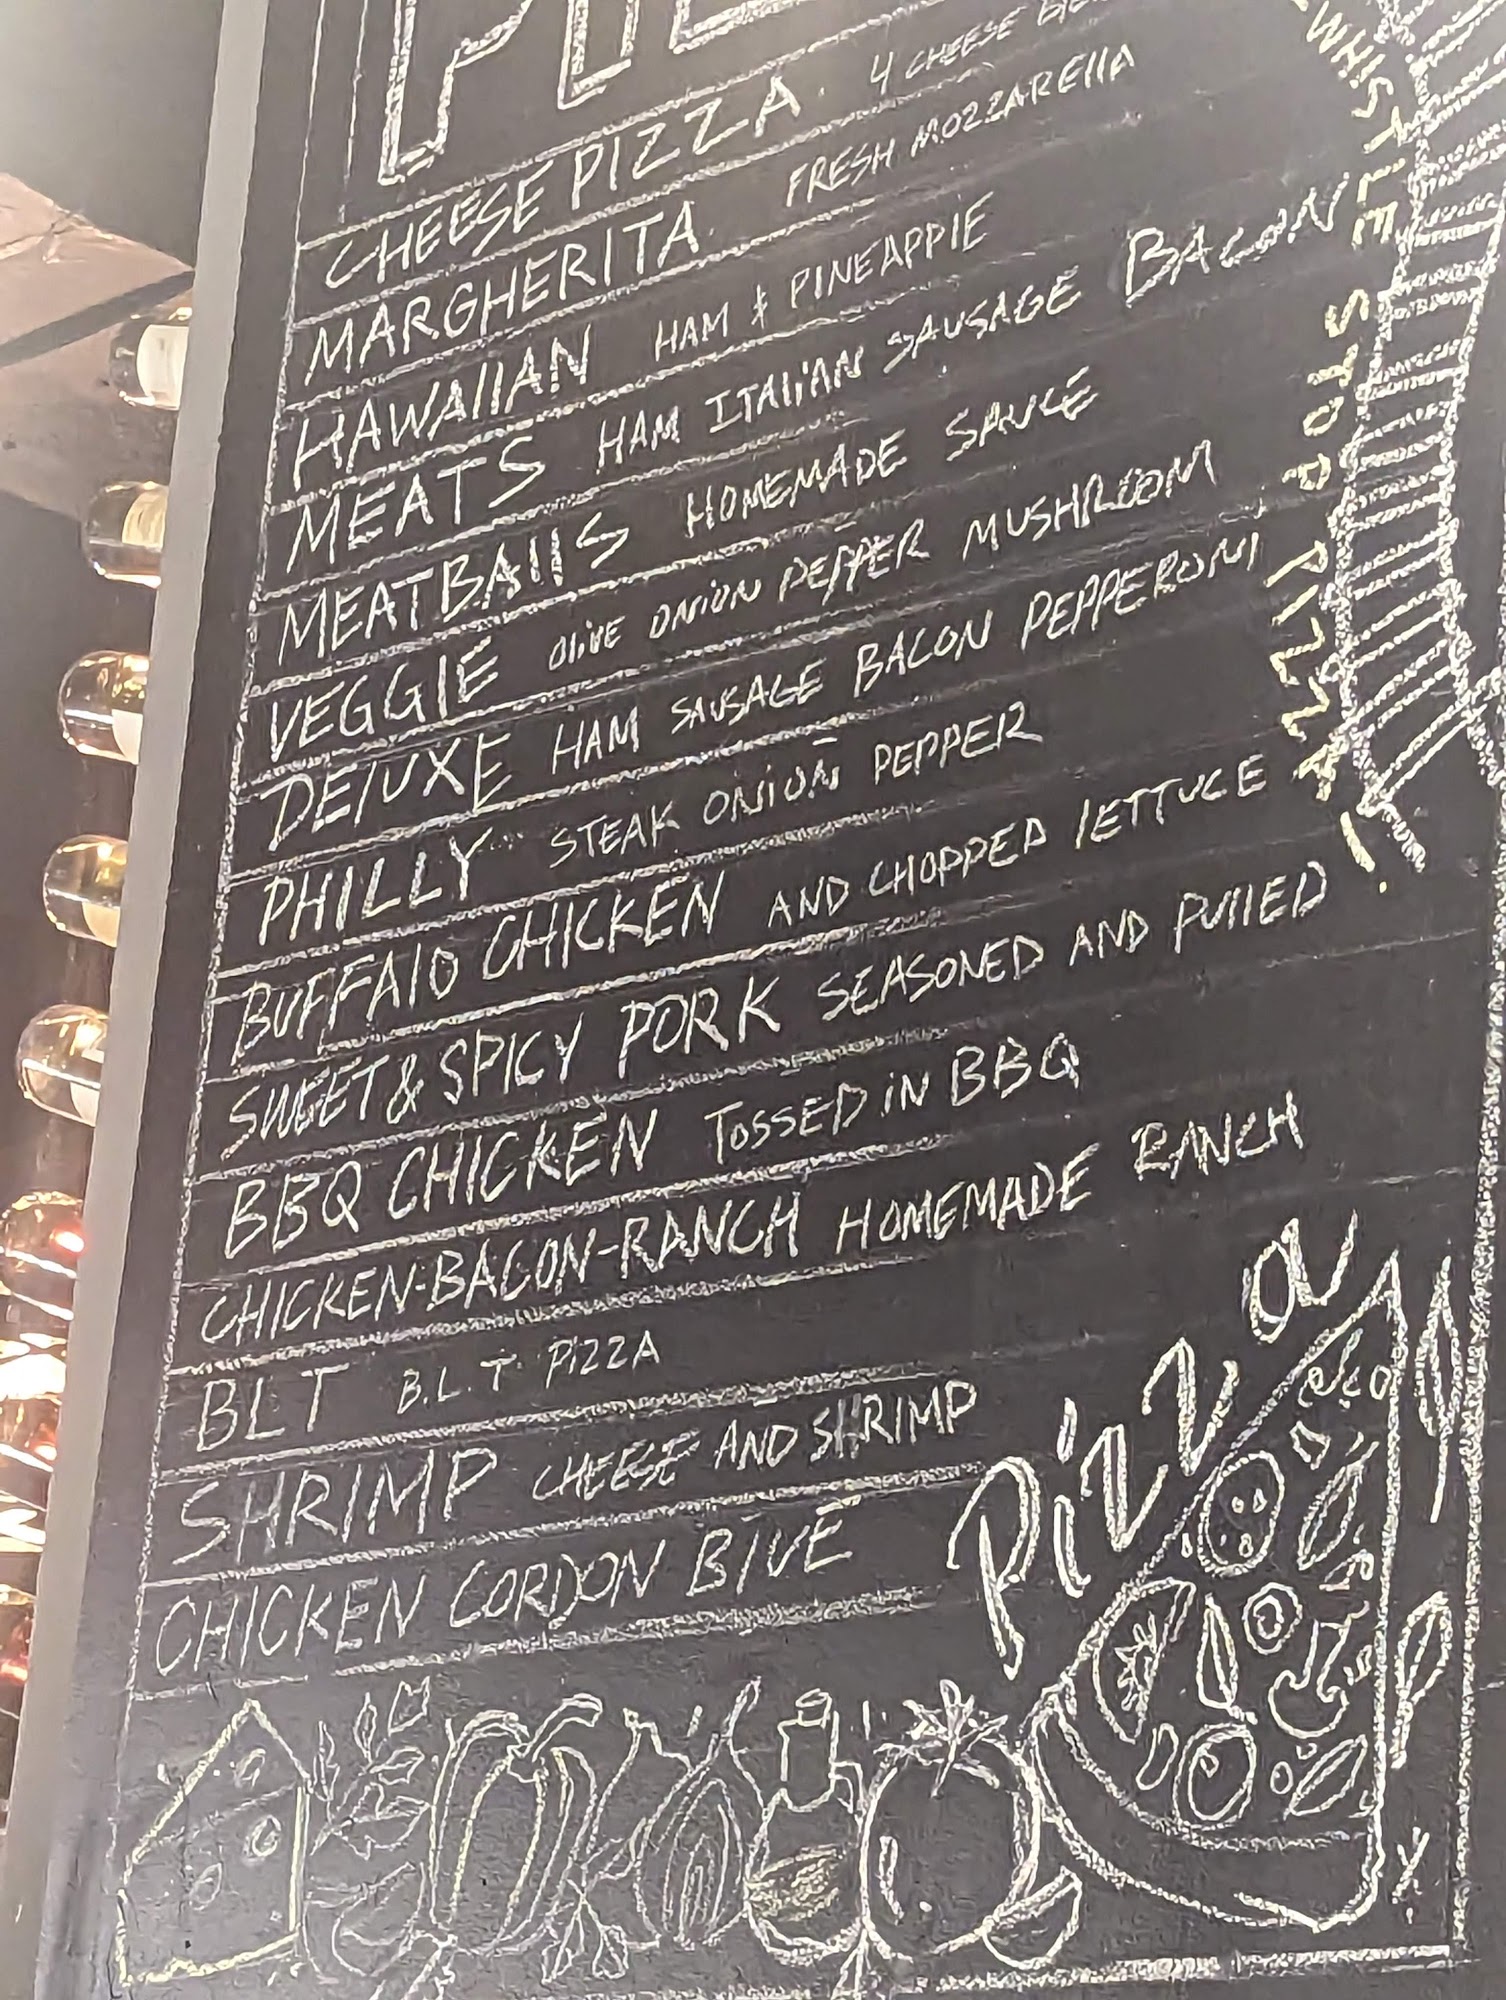 CHEESE PIZZA. 4 CHEESE
MARGHERITA. FRESH MOZZARELLA
HAWAIIAN HAM & PINEAPPLE
MEATS HAM ITALIAN SAUSAGE BACON
MEATBALLS HOMEMADE SAUCE
VEGGIE OLIVE ONION PEPPER MUSHROOM
DELUXE HAM SAUSAGE BACON PEPPERONI
PHILLY STEAK ONION PEPPER
BUFFALO CHICKEN AND CHOPPED LETTUCE
SWEET & SPICY PORK SEASONED AND PULLED
BBQ CHICKEN TOSSED IN BBQ
CHICKEN-BACON-RANCH HOMEMADE RANCH
BLT B.L.T PIZZA
SHRIMP CHEESE AND SHRIMP
CHICKEN CORDON BLUE
WHISTLE STOP PIZZA!
Pizza